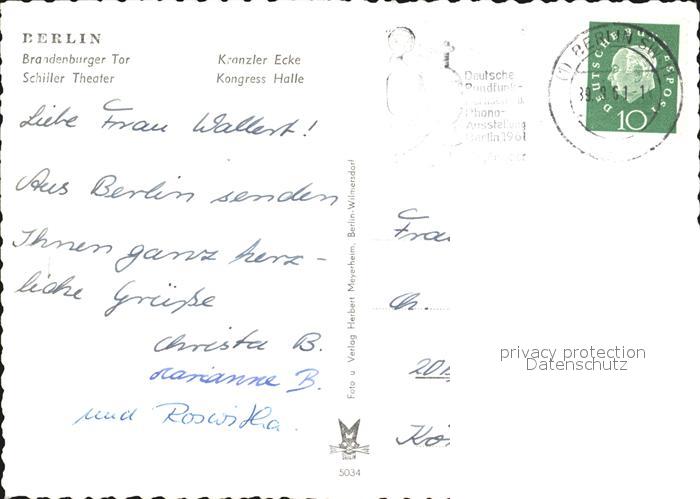 BERLIN
Brandenburger Tor
Kranzler Ecke
Schiller Theater
Kongress Halle
Liebe Frau Wallert!
Aus Berlin senden
Ihnen ganz herz-
liche Grüße
Christa B.
Marianne B.
und Roswitha.
Foto u Verlag Herbert Meyerheim, Berlin-Wilmersdorf
BERLIN
5034
Deutsche
Rundfunk-
Phono-
Ausstellung
Berlin 1961
(1) BERLIN
DEUTSCHE BUNDESPOST
10
Frau
Ch.
Kö
privacy protection
Datenschutz